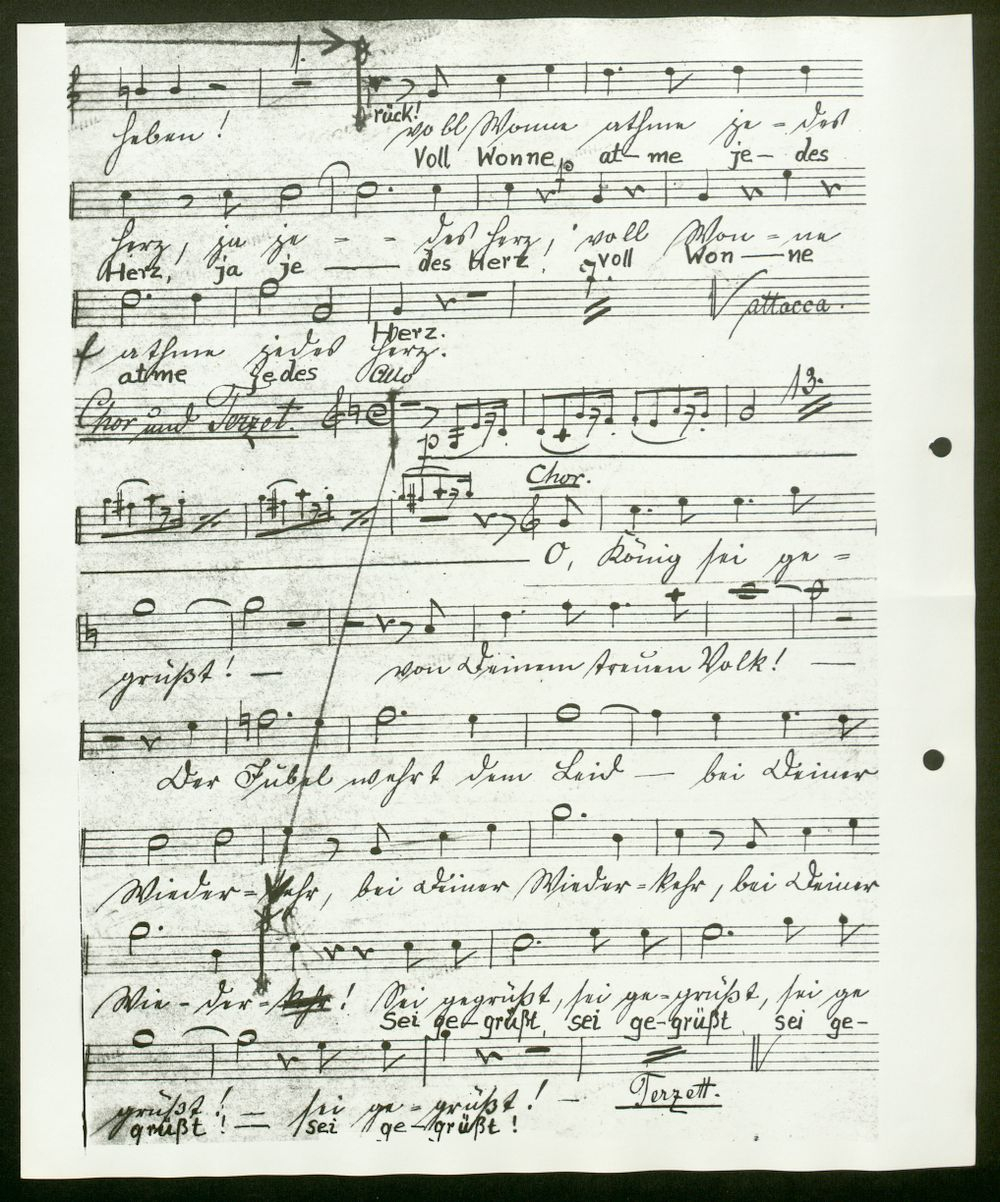 1.
heben! voll Wonne athme je - des
rück!
Voll Wonne at- me je- des
p
Herz, ja je - - des Herz, voll Won - ne
Herz, ja je des Herz! voll Won ne
7.
attacca.
Herz.
f athme jedes Herz.
atme jedes Allo
Chor und Terzet.
13.
p
Chor.
O, König sei ge =
grüßt! — von Deinem treuen Volk! —
Der Jubel wehrt dem Leid — bei Deiner
Wieder=kehr, bei Deiner Wieder=kehr, bei Deiner
Wie - der=kehr! Sei gegrüßt, sei ge=grüßt, sei ge
Sei ge-grüßt, sei ge-grüßt sei ge-
grüßt! — sei ge=grüßt! —
Terzett.
grüßt! — sei ge-grüßt!